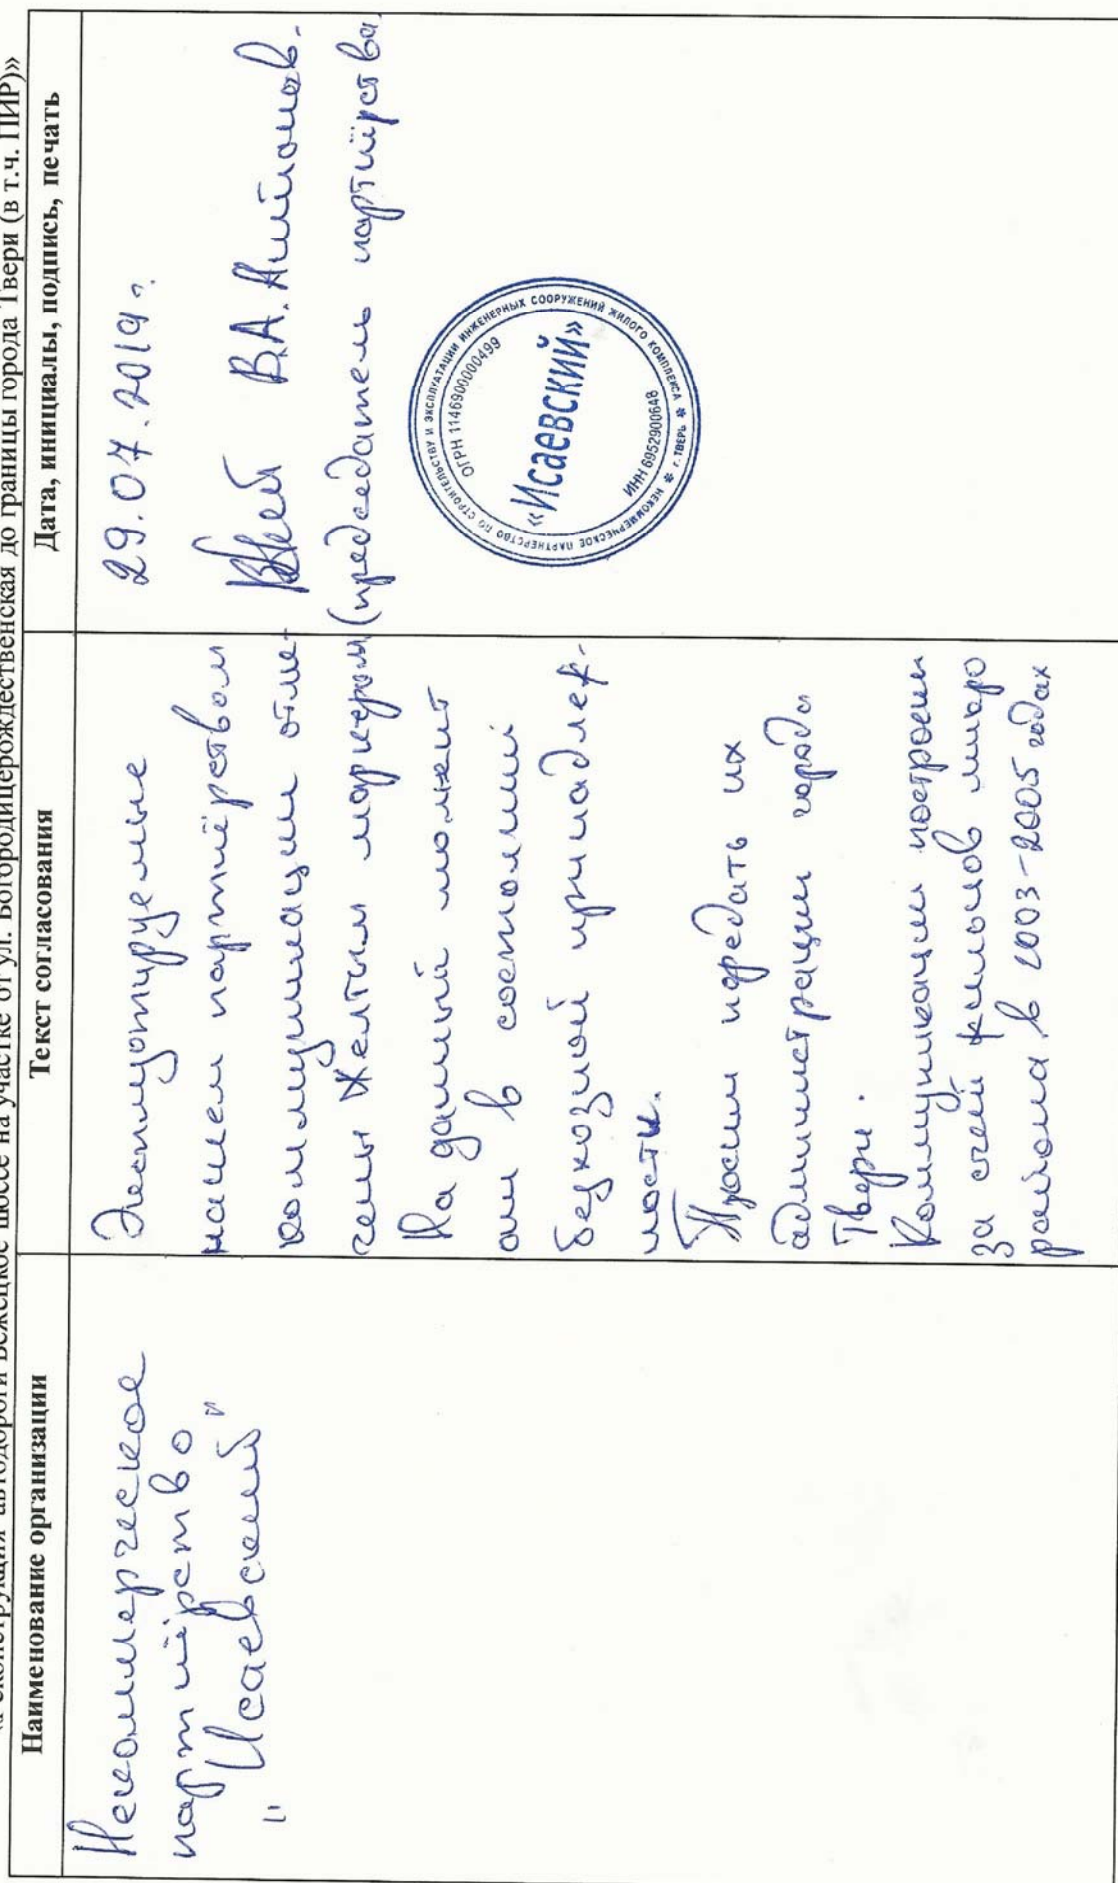 «Реконструкция автодороги Бежецкое шоссе на участке от ул. Богородицерождественская до границы города Твери (в т.ч. ПИР)»
Наименование организации
Текст согласования
Дата, инициалы, подпись, печать
Некоммерческое
партнёрство
"Исаевский"
Эксплуатируемые
нашем партнёрством
коммуникации отме-
чены желтым маркером
На данный момент
они в состоянии
безхозной принадлеж-
ности.
Просим передать их
администрации города
Твери.
Коммуникации построены
за счёт жильцов микро
района в 2003-2005 годах
29.07.2019 г.
В.А.
(председатель партнёрства)
НЕКОММЕРЧЕСКОЕ ПАРТНЕРСТВО ПО СТРОИТЕЛЬСТВУ И ЭКСПЛУАТАЦИИ ИНЖЕНЕРНЫХ СООРУЖЕНИЙ ЖИЛОГО КОМПЛЕКСА
г. ТВЕРЬ
ОГРН 1146900000499
«Исаевский»
ИНН 6952900648